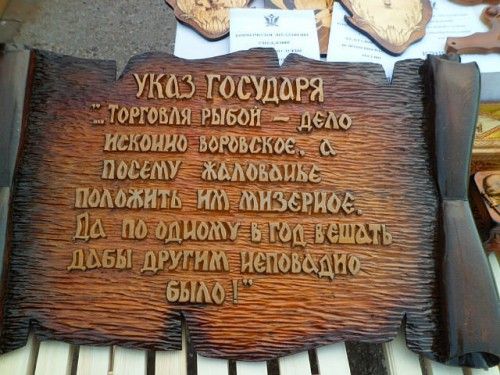 УКАЗ ГОСУДАРЯ
"...ТОРГОВЛЯ РЫБОЙ – ДЕЛО
ИСКОННО ВОРОВСКОЕ, А
ПОСЕМУ ЖАЛОВАНЬЕ
ПОЛОЖИТЬ ИМ МИЗЕРНОЕ.
ДА ПО ОДНОМУ В ГОД ВЕШАТЬ
ДАБЫ ДРУГИМ НЕПОВАДНО
БЫЛО!"